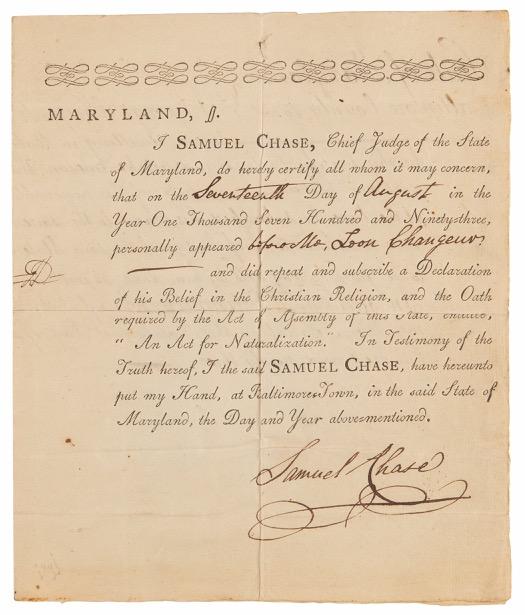 MARYLAND, ſſ.
I SAMUEL CHASE, Chief Judge of the State
of Maryland, do hereby certify all whom it may concern,
that on the Seventeenth Day of August in the
Year One Thousand Seven Hundred and Ninety-three,
personally appeared before Me, Leon Changeur
and did repeat and subscribe a Declaration
of his Belief in the Christian Religion, and the Oath
required by the Act of Aſsembly of this State, entitled,
“ An Act for Naturalization.” In Testimony of the
Truth hereof, I the said SAMUEL CHASE, have hereunto
put my Hand, at Baltimore-Town, in the said State of
Maryland, the Day and Year above-mentioned.
Samuel Chase